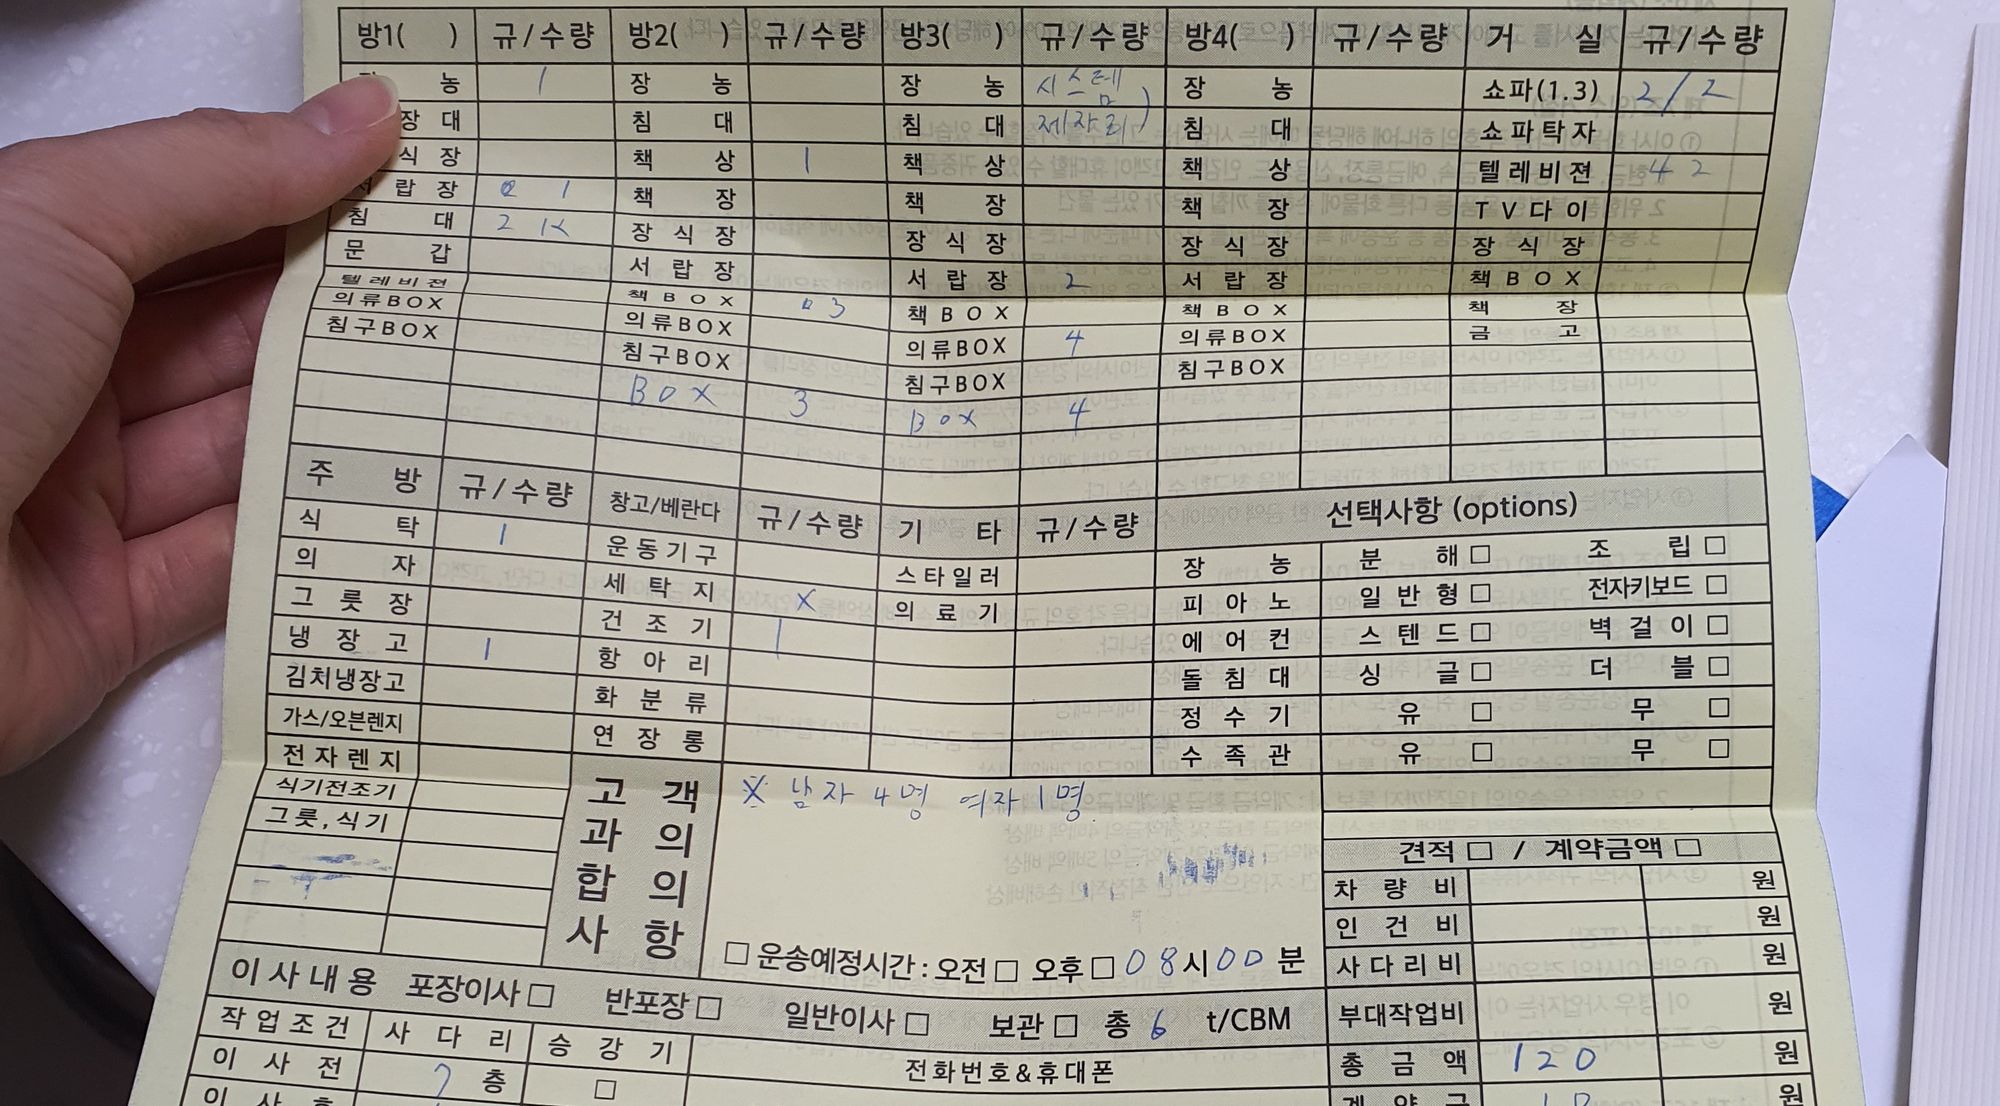 방1( ) 규/수량 방2( ) 규/수량 방3( ) 규/수량 방4( ) 규/수량 거 실 규/수량
농 1 장 농 장 농 시스템 장 농 쇼파(1.3) 2/2
장 대 침 대 침 대 제자리) 침 대 쇼파탁자
식 장 책 상 1 책 상 책 상 텔레비젼 42
서 랍 장 1 책 장 책 장 책 장 TV다이
침 대 2K 장 식 장 장 식 장 장 식 장 장 식 장
문 갑 서 랍 장 서 랍 장 2 서 랍 장 책 BOX
텔레비젼 책 BOX 3 책 BOX 책 BOX 책 장
의류BOX 의류BOX 의류BOX 4 의류BOX 금 고
침구BOX 침구BOX 침구BOX 침구BOX
BOX 3 BOX 4
주 방 규/수량 창고/베란다 규/수량 기 타 규/수량 선택사항 (options)
식 탁 1 운동기구 스타일러 장 농 분 해 □ 조 립 □
의 자 세 탁 지 X 의 료 기 피 아 노 일 반 형 □ 전자키보드 □
그 릇 장 건 조 기 1 에 어 컨 스 텐 드 □ 벽 걸 이 □
냉 장 고 1 항 아 리 돌 침 대 싱 글 □ 더 블 □
김치냉장고 화 분 류 정 수 기 유 □ 무 □
가스/오븐렌지 연 장 통 수 족 관 유 □ 무 □
전자렌지
식기전조기
그릇,식기
고 객 과 의 합 의 사 항
※ 남자 4명 여자 1명
견적 □ / 계약금액 □
차 량 비 원
인 건 비 원
□ 운송예정시간 : 오전 □ 오후 □ 08시 00 분 사다리비 원
이 사 내 용 포장이사 □ 반포장 □ 일반이사 □ 보관 □ 총 6 t/CBM 부대작업비 원
작업조건 사 다 리 승 강 기 전화번호&휴대폰 총 금 액 120 원
이 사 전 7 층 □ 계 약 금 원